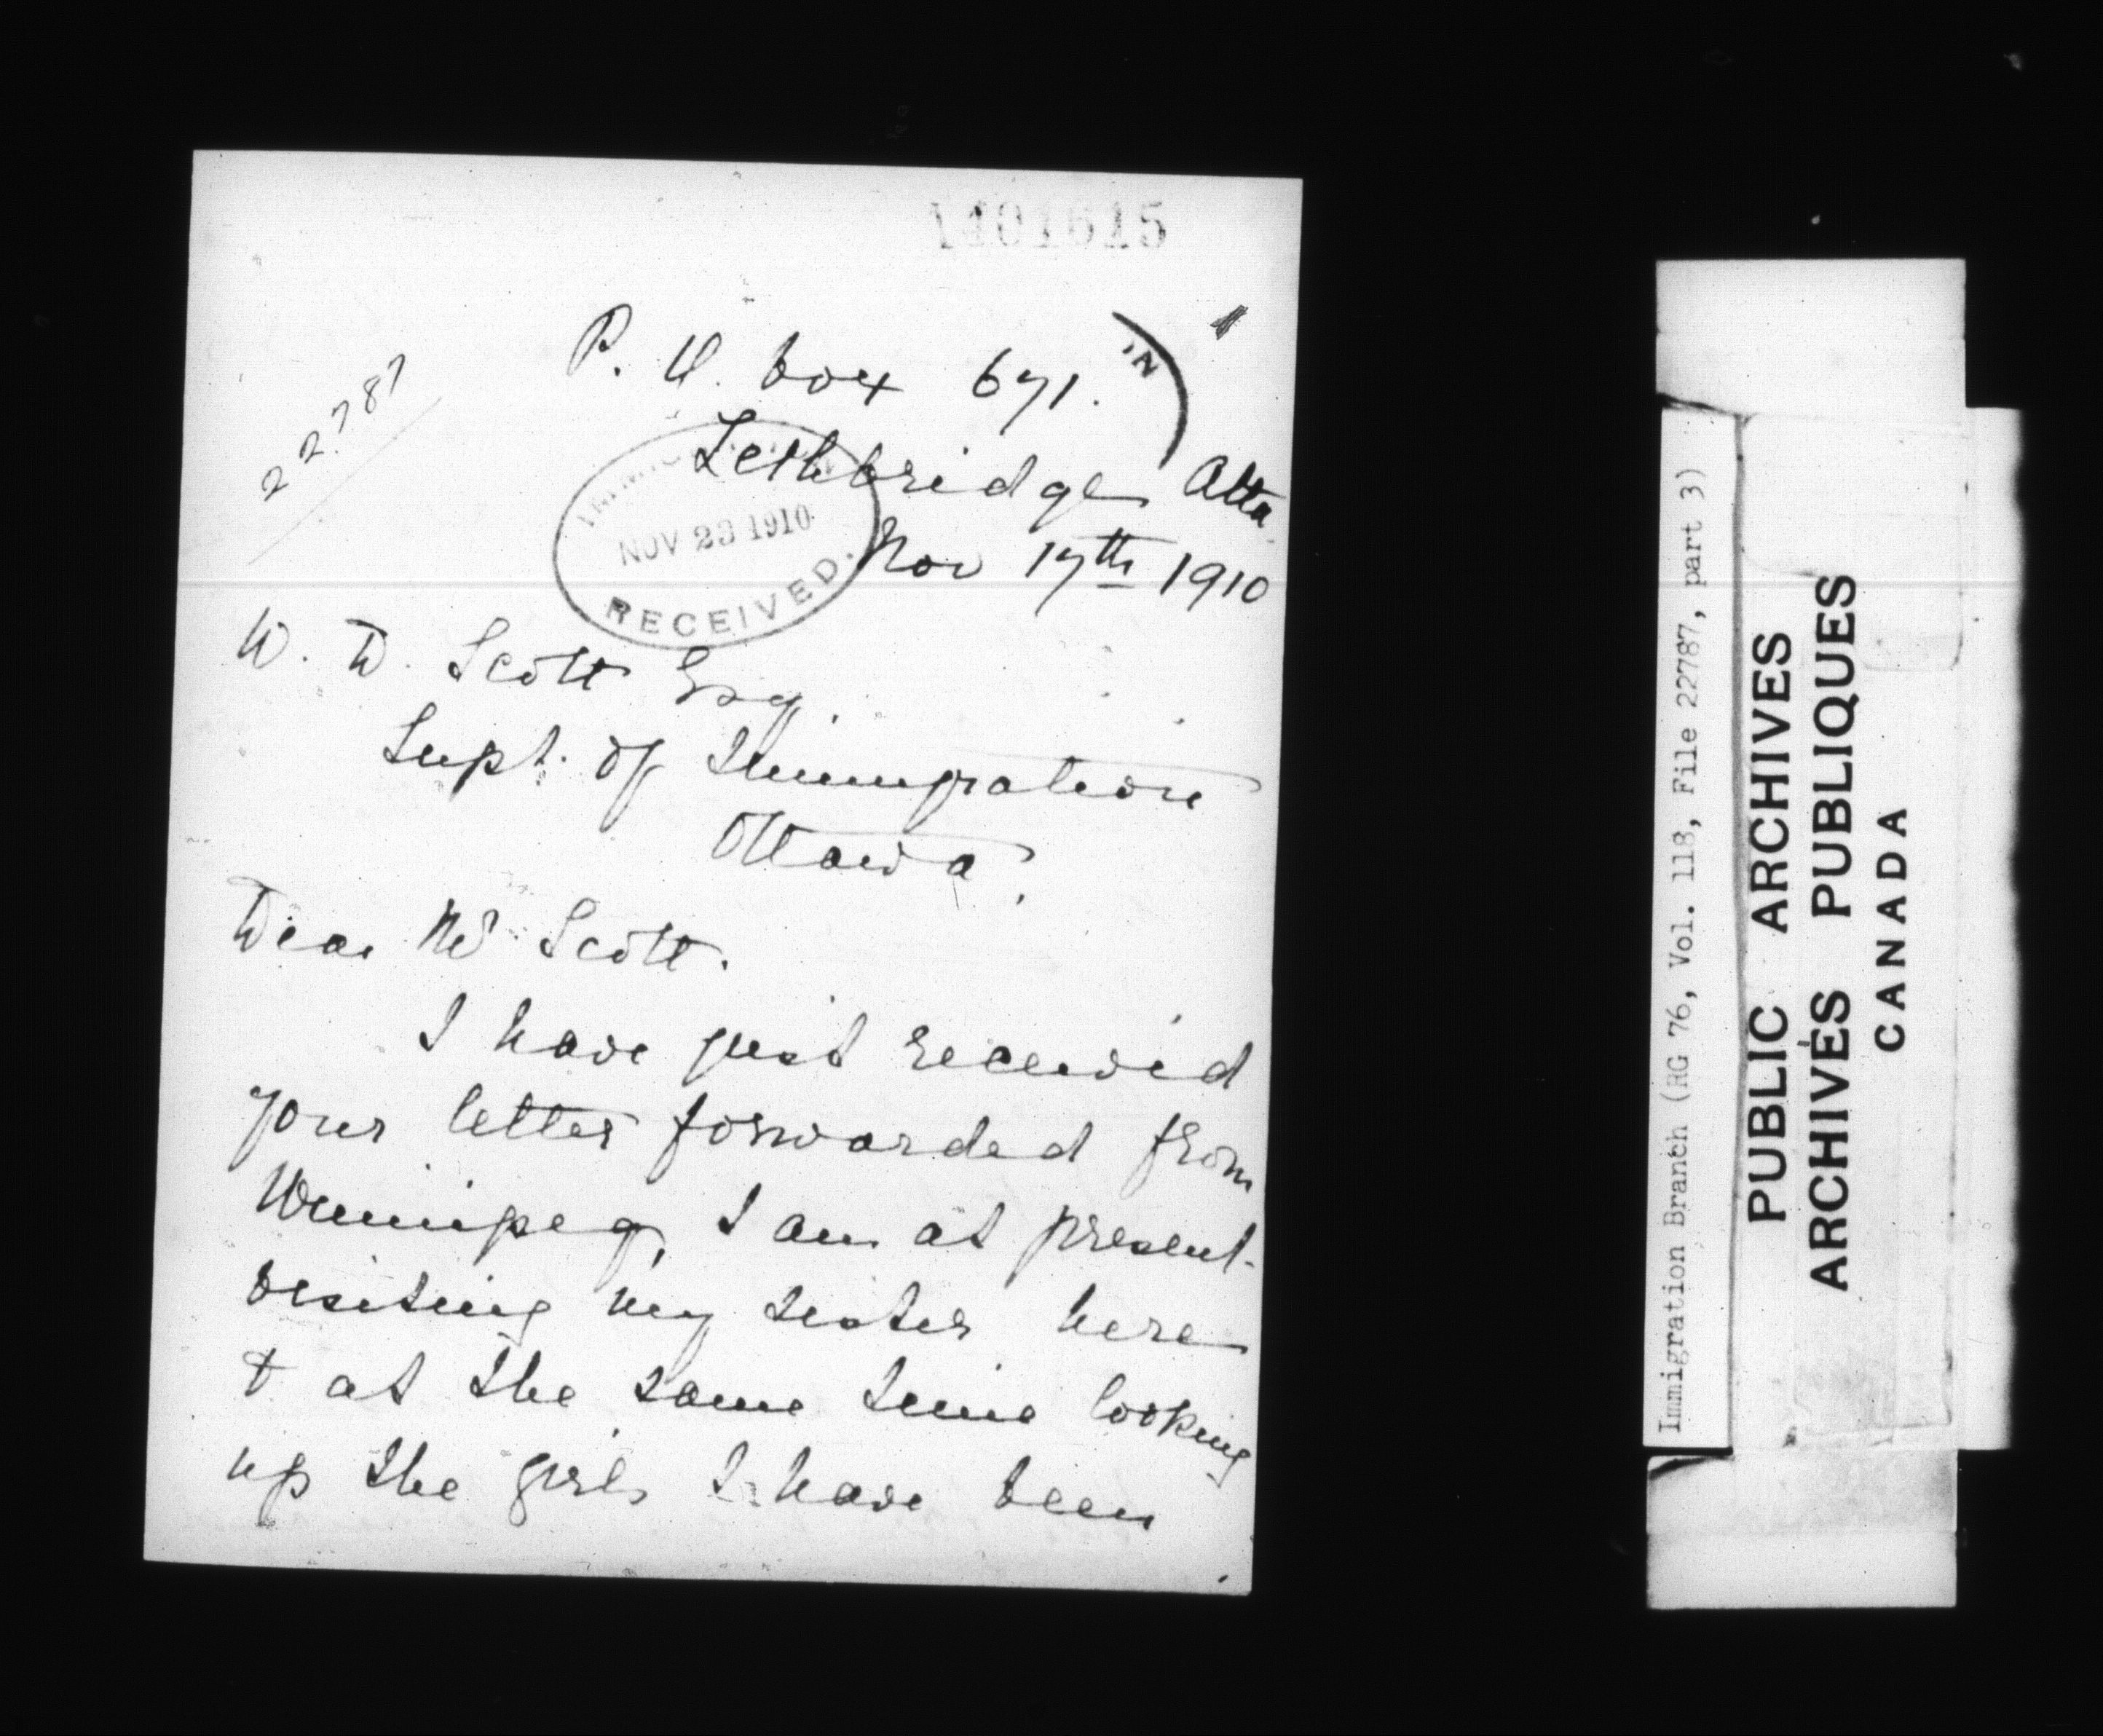 1401615
22787
P. O. box 671.
IN
Lethbridge Alta
IMMIGRATION
NOV 23 1910
RECEIVED.
Nov 17th 1910
W. D. Scott Esq.
Supt. of Immigration
Ottawa.
Dear Mr Scott.
I have just received
your letter forwarded from
Winnipeg, I am at present
visiting my sister here
& at the same time looking
up the girls I have been
Immigration Branch (RG 76, Vol. 118, File 22787, part 3)
PUBLIC ARCHIVES
ARCHIVES PUBLIQUES
CANADA